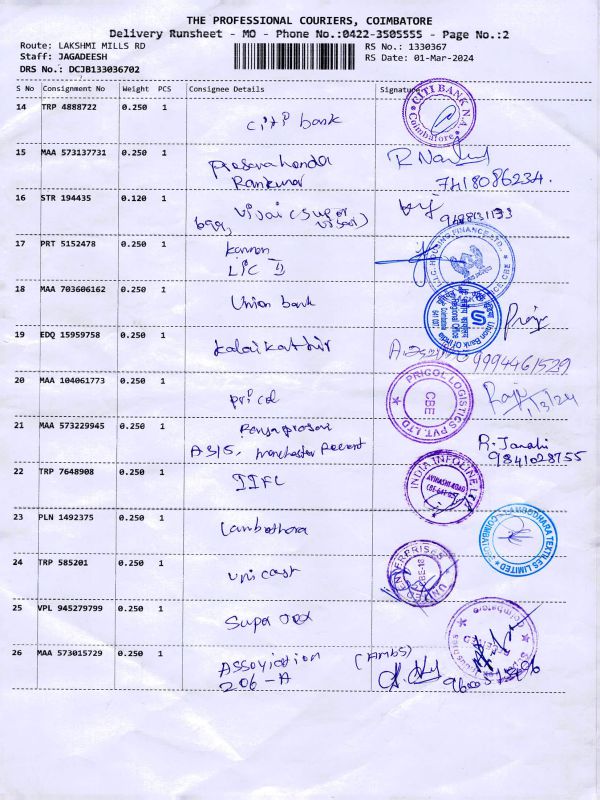 THE PROFESSIONAL COURIERS, COIMBATORE
Delivery Runsheet - MO - Phone No.:0422-3505555 - Page No.:2
Route: LAKSHMI MILLS RD
RS No.: 1330367
Staff: JAGADEESH
RS Date: 01-Mar-2024
DRS No.: DCJB133036702
S No Consignment No Weight PCS Consignee Details Signature
14 TRP 4888722 0.250 1
citi bank
CITI BANK N.A.
Coimbatore
15 MAA 573137731 0.250 1
Ramkumar
7418086234.
16 STR 194435 0.120 1
vijai (super
17 PRT 5152478 0.250 1
Kannan
LIC II
HOUSING FINANCE LTD.
18 MAA 703606162 0.250 1
Union bank
Union Bank Of India
Regional Office
Coimbatore
19 EDQ 15959758 0.250 1
Kalaikathir
9994461529
20 MAA 104061773 0.250 1
pricol
PRICOL LOGISTICS PVT. LTD.
CBE
Raju
1/3/24
21 MAA 573229945 0.250 1
A3/5, manchester Regent
R. Janaki
9841028755
22 TRP 7648908 0.250 1
IIFL
INDIA INFOLINE LTD
AVINASHI ROAD
23 PLN 1492375 0.250 1
Lambothara
LAMBODHARA TEXTILES LIMITED
COIMBATORE
24 TRP 585201 0.250 1
unicast
UNITED ENTERPRISES
25 VPL 945279799 0.250 1
Supa
Coimbatore
26 MAA 573015729 0.250 1
(AMBS)
206-A